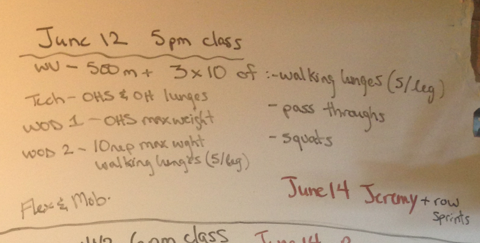 June 12 5pm class
WU - 500m + 3x10 of :- walking lunges (5/leg)
- pass throughs
- squats
Tech - OHS & OH lunges
WOD 1 - OHS max weight
WOD 2 - 10 rep max wght
walking lunges (5/leg)
Flex & Mob.
June 14 Jeremy + row
sprints
class June 14